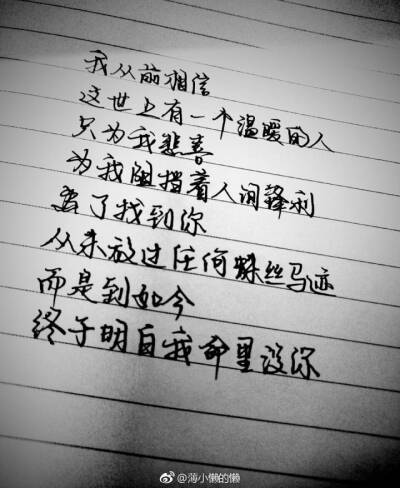 我从前相信
这世上有一个温暖的人
只为我悲喜
为我阻挡着人间锋利
为了找到你
从未放过任何蛛丝马迹
而是到如今
终于明白我命里没你
@薄小懒的懒